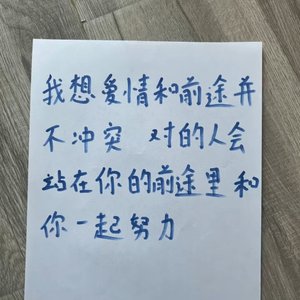 我想爱情和前途并
不冲突 对的人会
站在你的前途里和
你一起努力